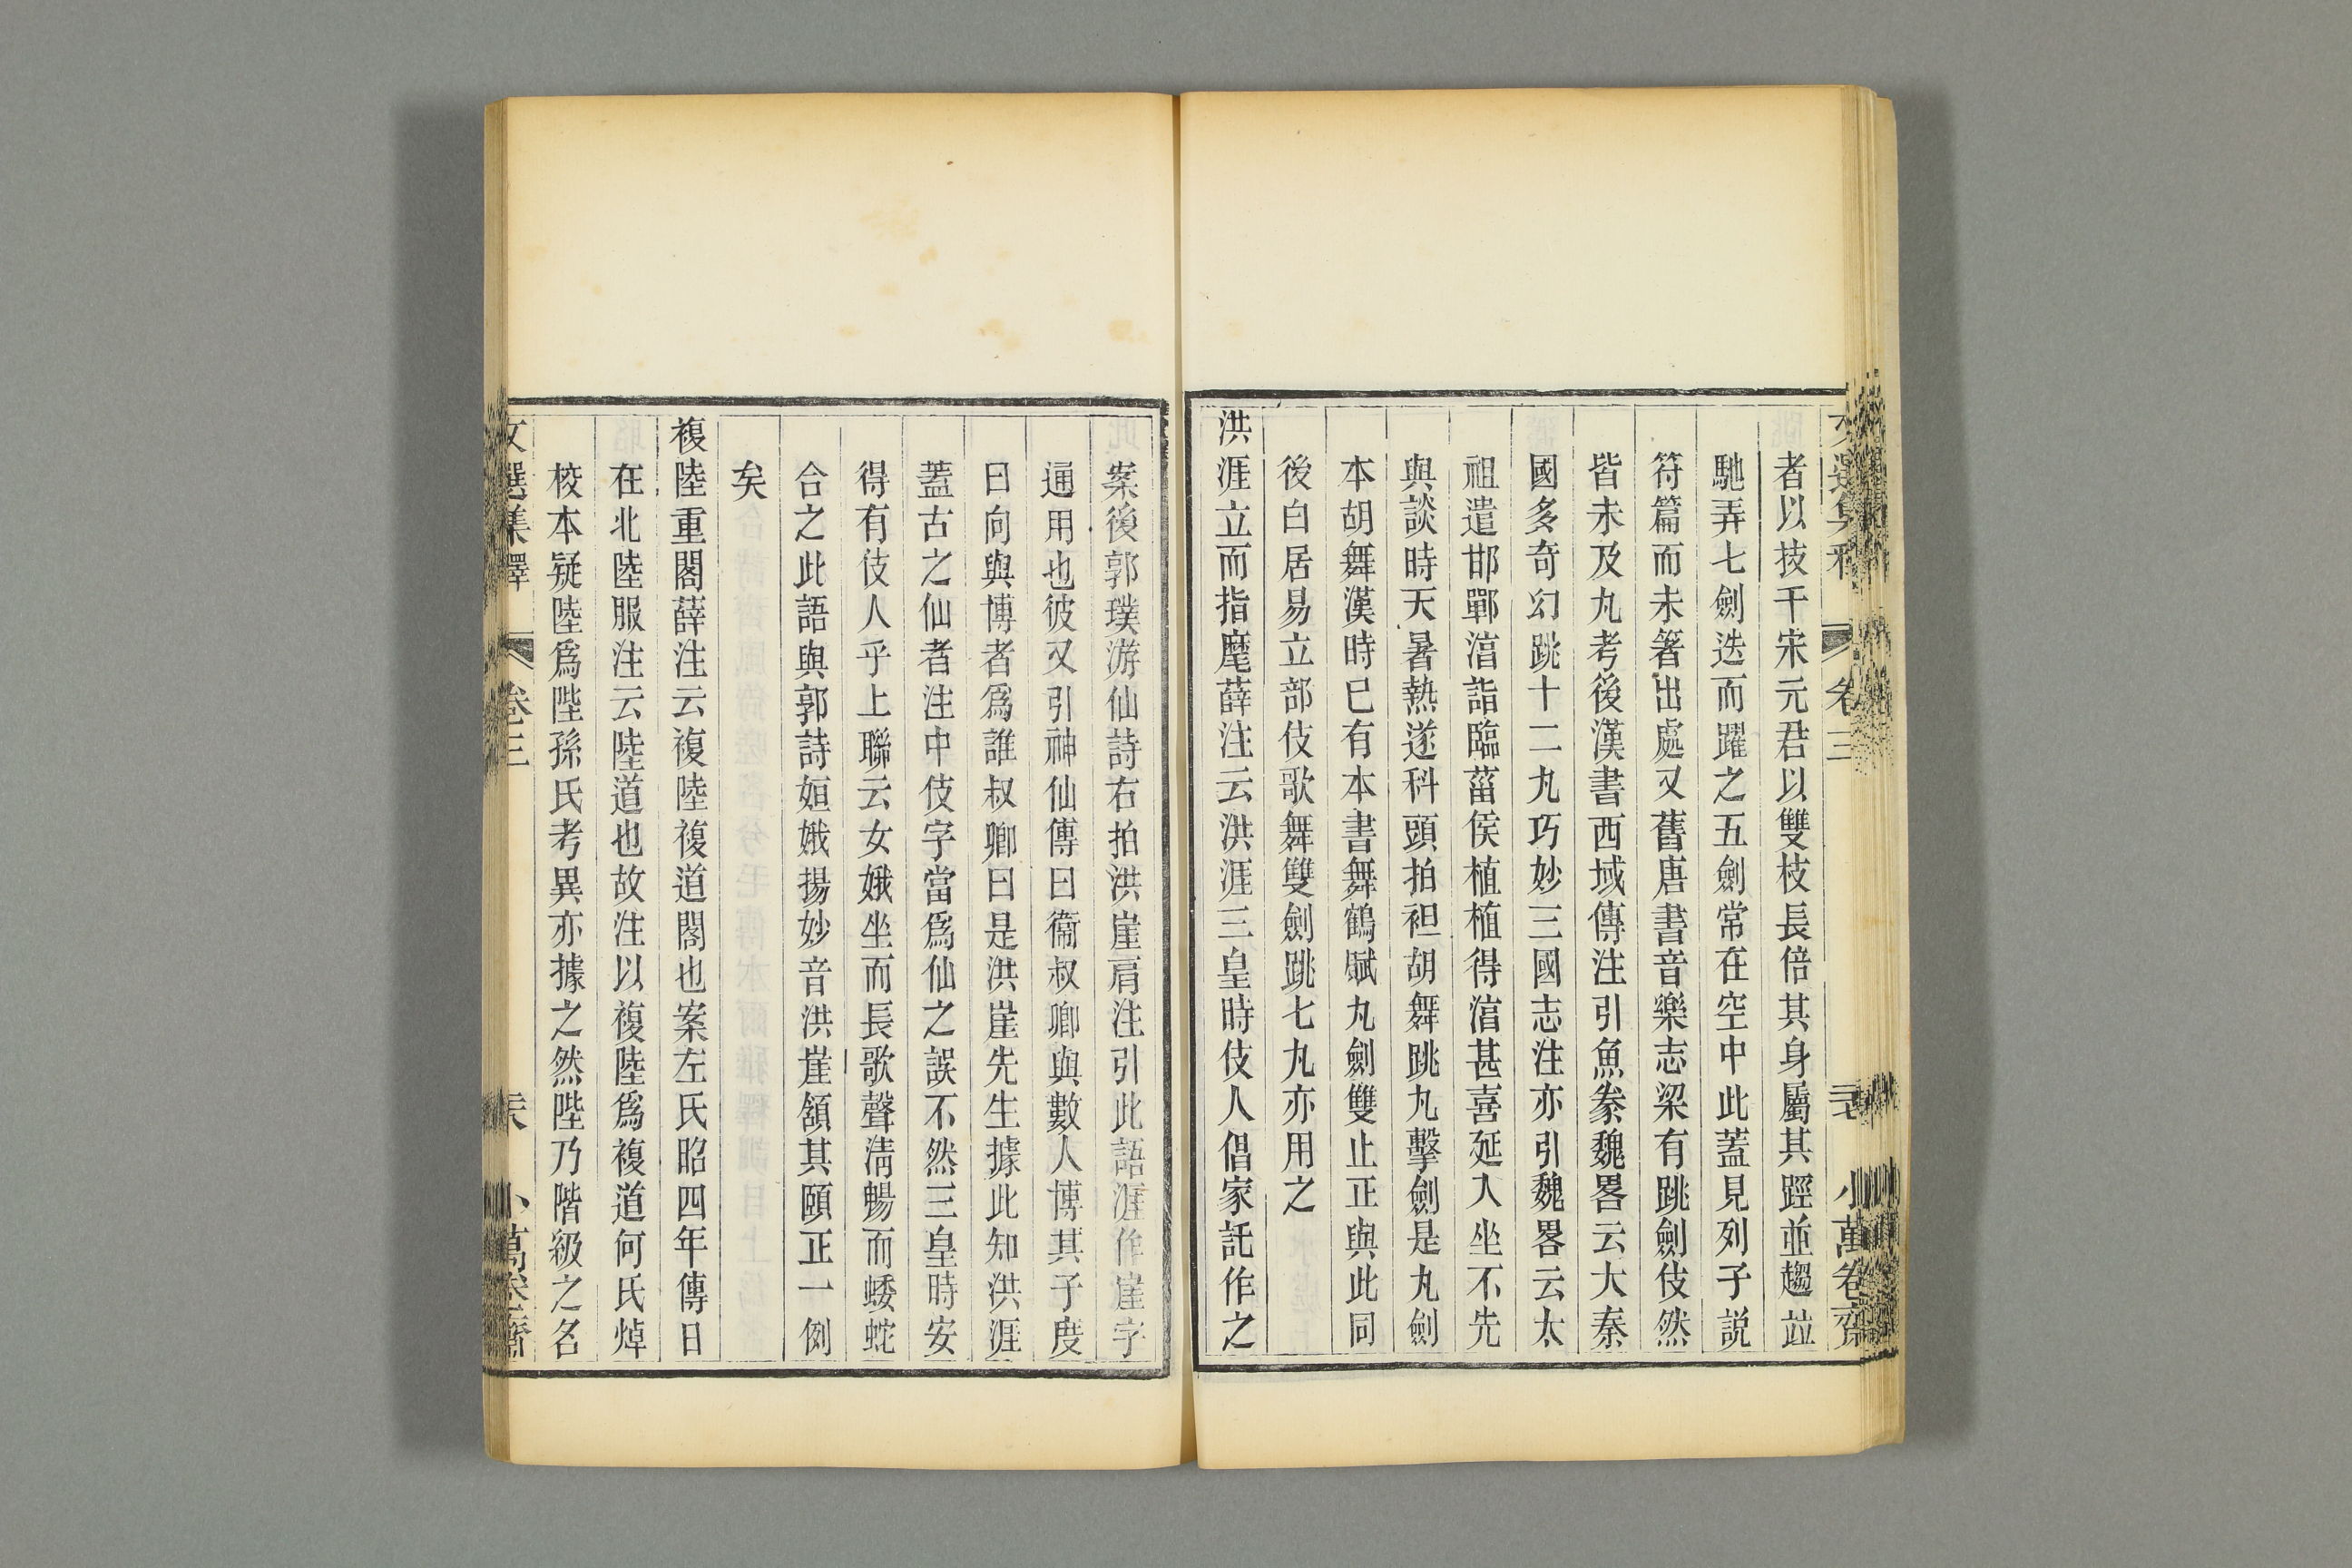 者以技干宋元君以雙枝長倍其身屬其踁並趨竝
馳弄七劍迭而躍之五劍常在空中此蓋見列子説
符篇而未箸出處又舊唐書音樂志梁有跳劍伎然
皆未及丸考後漢書西域傳注引魚豢魏畧云大秦
國多奇幻跳十二丸巧妙三國志注亦引魏畧云太
祖遣邯鄲淳詣臨菑侯植植得淳甚喜延入坐不先
與談時天暑熱遂科頭拍袒胡舞跳丸擊劍是丸劍
本胡舞漢時已有本書舞鶴賦丸劍雙止正與此同
後白居易立部伎歌舞雙劍跳七丸亦用之
洪涯立而指麾薛注云洪涯三皇時伎人倡家託作之
案後郭璞游仙詩右拍洪崖肩注引此語涯作崖字
通用也彼又引神仙傳曰衞叔卿與數人博其子度
曰向與博者爲誰叔卿曰是洪崖先生據此知洪涯
蓋古之仙者注中伎字當爲仙之誤不然三皇時安
得有伎人乎上聯云女娥坐而長歌聲淸暢而蜲蛇
合之此語與郭詩姮娥揚妙音洪崖頷其頤正一例
矣
複陸重閣薛注云複陸複道閣也案左氏昭四年傳日
在北陸服注云陸道也故注以複陸爲複道何氏焯
校本疑陸爲陛孫氏考異亦據之然陛乃階級之名
文選集釋 卷三 小萬卷齋